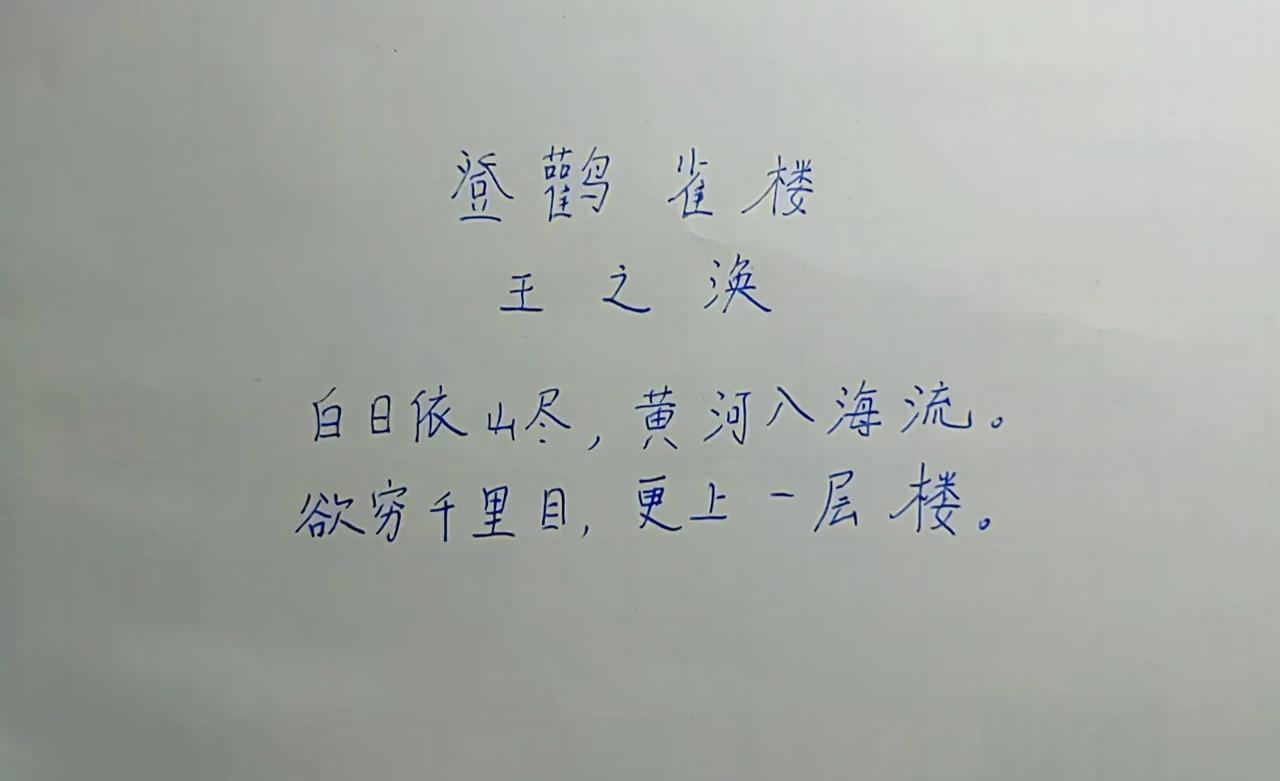 登鹳雀楼
王之涣
白日依山尽，黄河入海流。
欲穷千里目，更上一层楼。